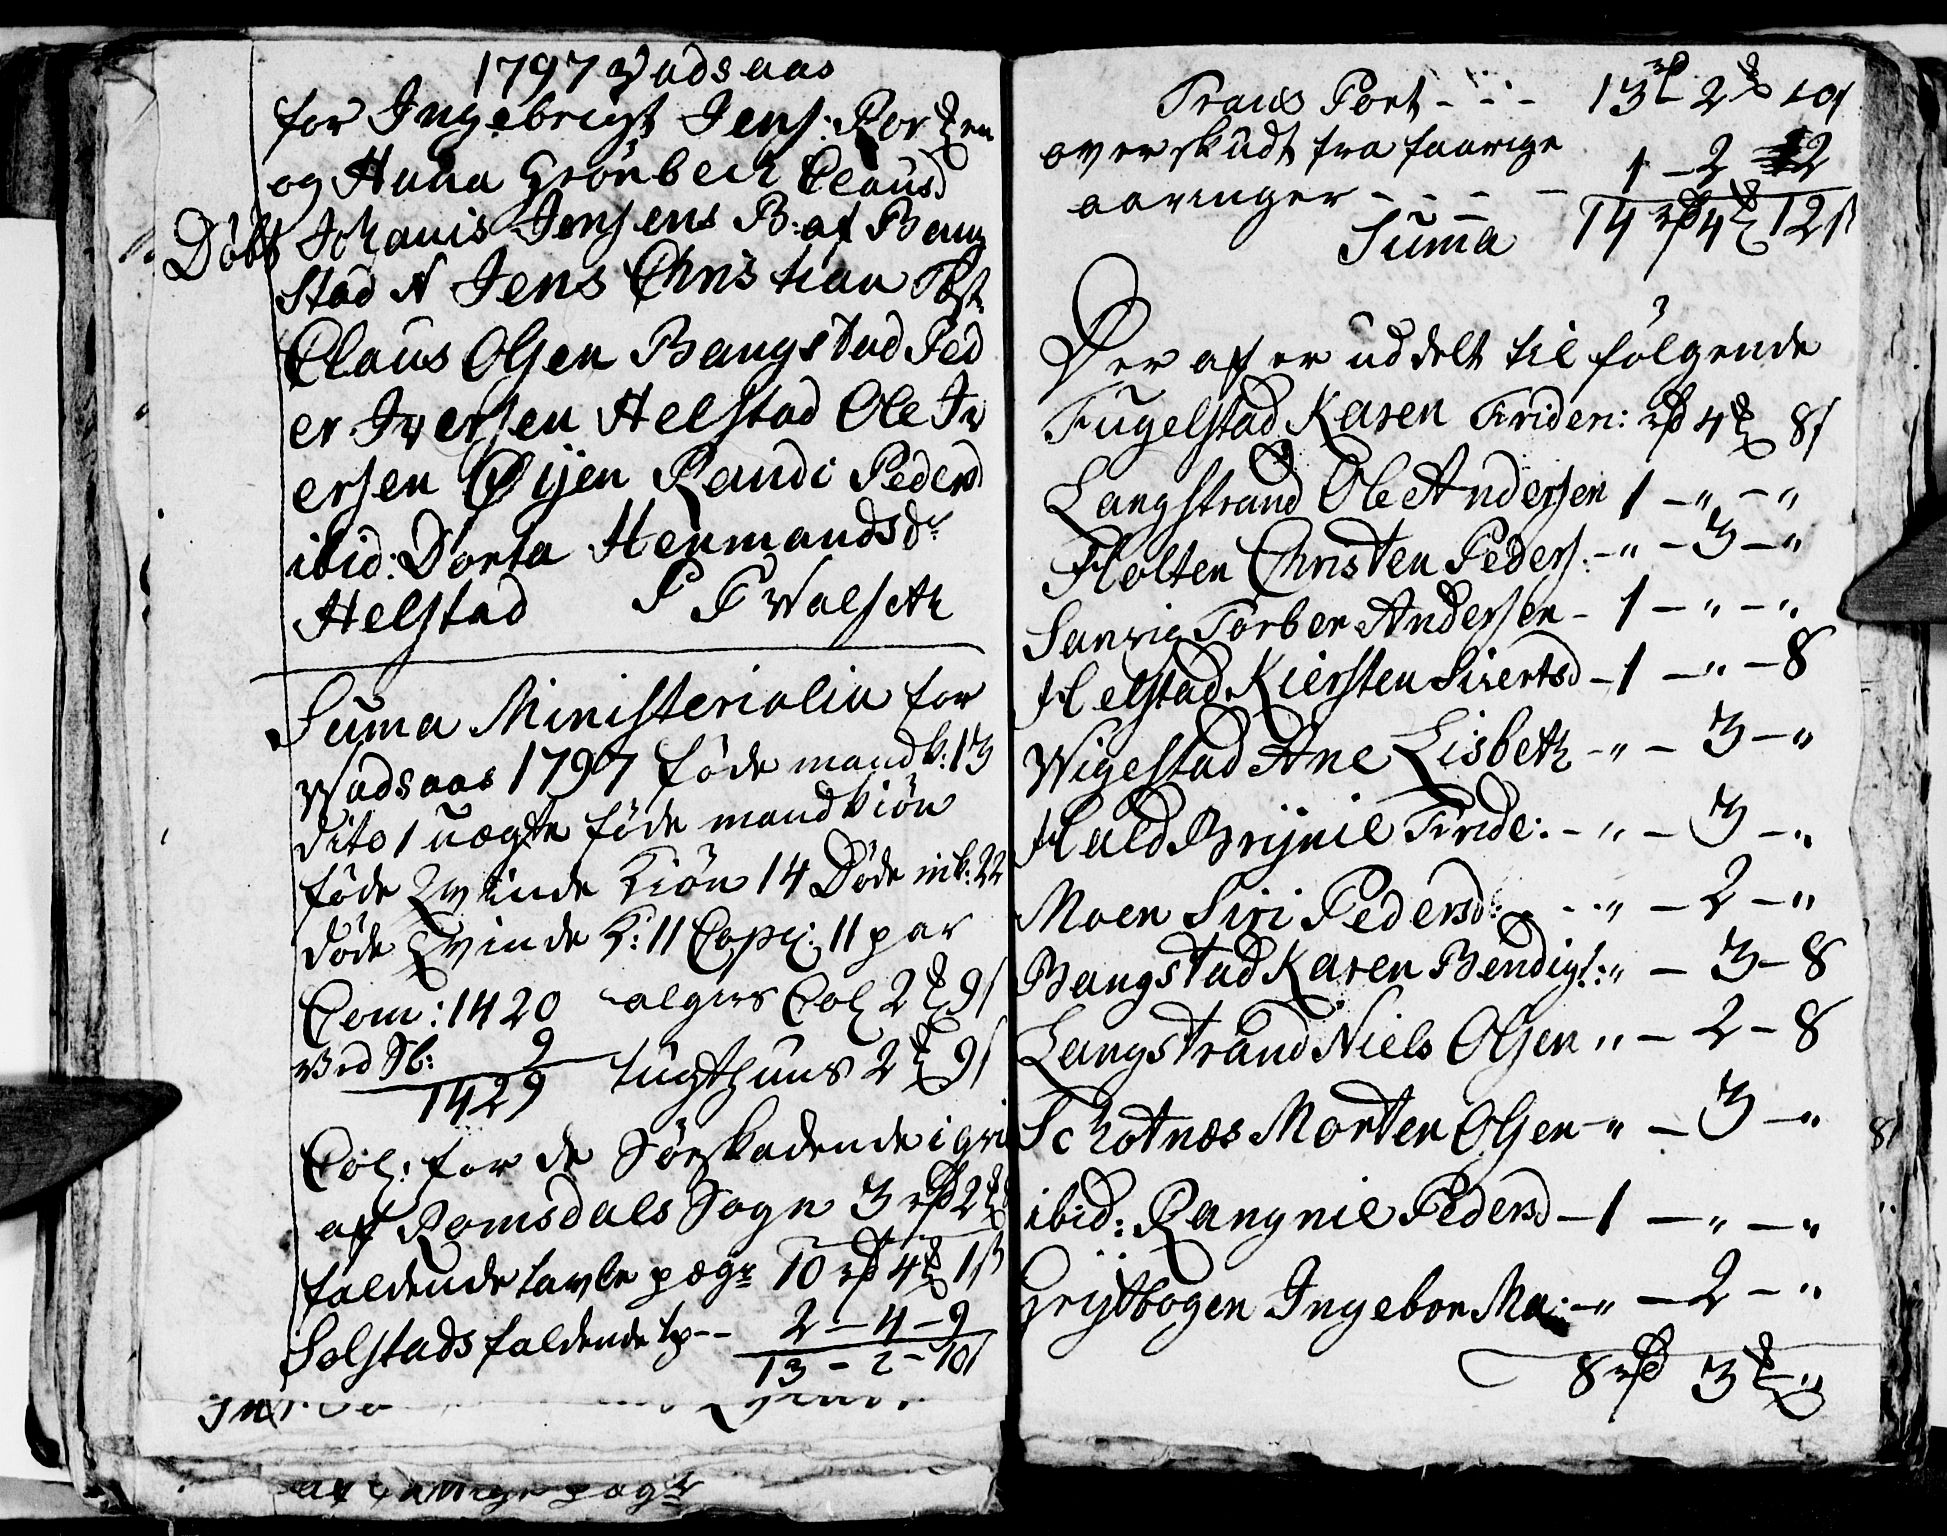 1797 Vadsaas
for Ingebrigt Jens: Ror
og Hana Grönbech Clausd
Döbt Johanis Jensens B: af Bang
stad N Jens Christian Test
Claus Olsen Bangstad Ped
er Iversen Helstad Ole Iv
ersen Øijen Randi Pedersd
ibid: Dorta Hermandsdr
Helstad P F Walseth
Suma Ministerialia for
Wadsaas 1797 föde mandk: 13
dito 1 uægte föde mandkiön
föde Qvinde Kiön 14 Döde mk: 22
döde Qvinde K: 11 Copul: 11 par
Com: 1420 Coll 2 ₻ 9 s
ved Sb: 9 tugthuus 2 ₻ 9 s
1429
Col: for de Söeskadende i
af Romsdals Sogn 3 rd 2 ₻
faldende tavle pægr 10 rd 4 ₻ 1 s
Solstads faldende tp -- 2 - 4 - 9
13 - 2 - 10 s
af pægr
Trans Port - - - 13 rd 2 ₻ 10 s
overskudt fra faarige
aaringer - - - - 1 - 2 2
Suma 14 rd 4 ₻ 12 s
Der af er uddelt til fölgende
Fugelstad Karen Frider: rd 4 ₻ 8 s
Langstrand Ole Andersen 1 - " - "
Holten Christen Peders: - " - 3 - "
Sanvig Torber Andersen - 1 - " - "
Helstad Kiersten Sivertsd - 1 - " - 8
Wigestad Ane Lisbeth - " - 3 - "
Hald Brijnil Fride: - " - 3 - "
Moen Siri Pedersd: - " - 2 - "
Bangstad Karen Bendigt: " - 3 - 8
Langstrand Niels Olsen " - 2 - 8
Schotnæs Morten Olsen - " - 3 - "
ibid: Rangnil Pedersd - 1 - " - "
Grijtbogen Ingebor Ma: - " - 2 - "
8 rd 3 ₻ "